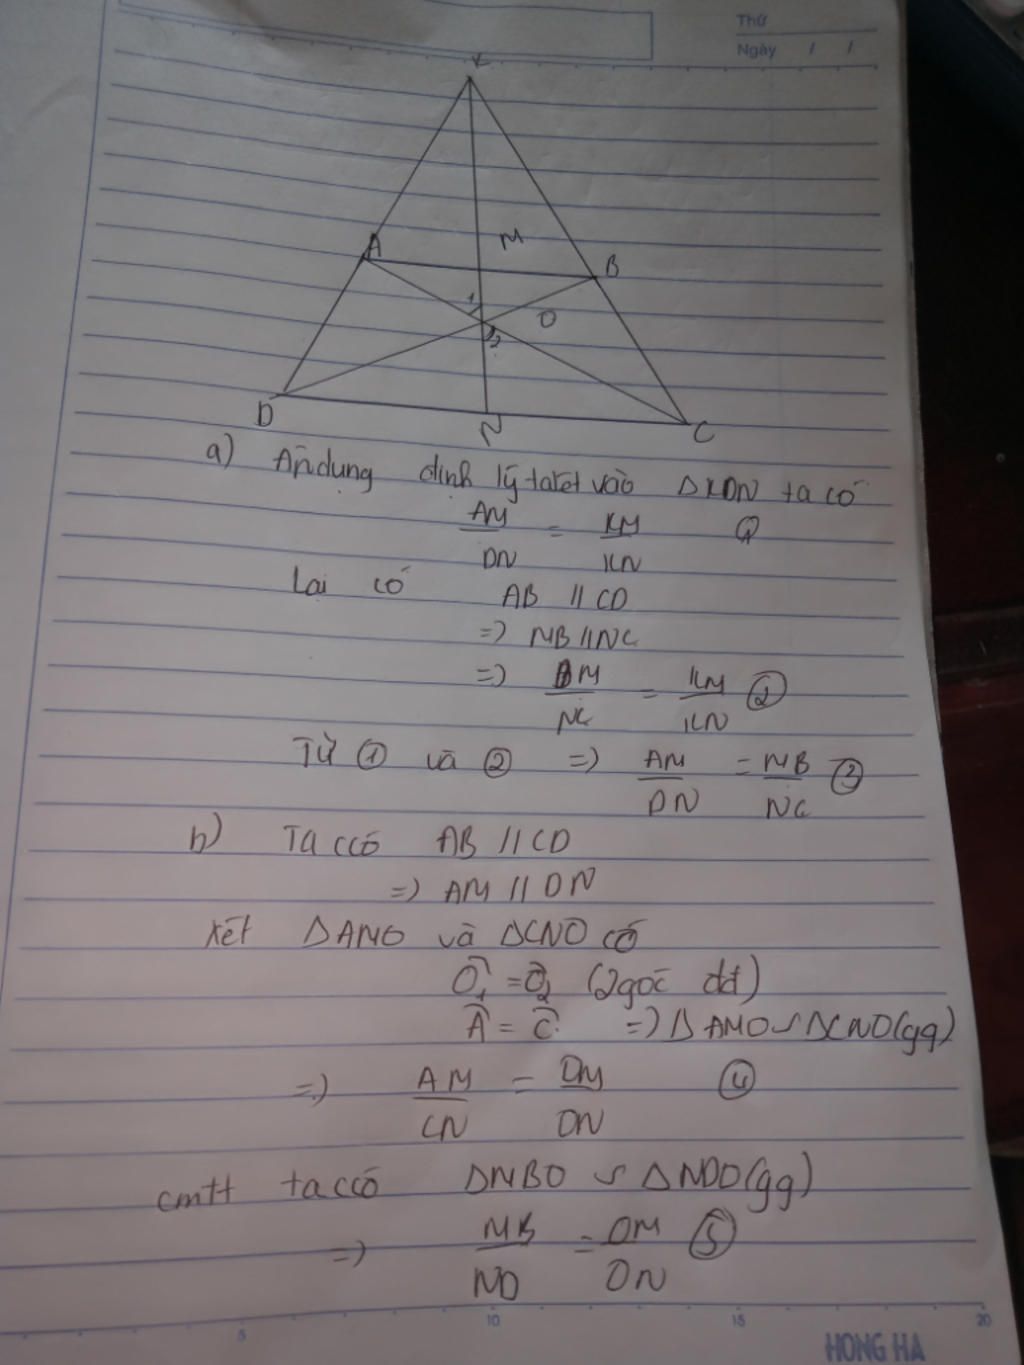 Thứ
Ngày / /
K
A M B
1
O
2
D N C
a) Áp dụng định lý talet vào ΔKDN ta có
AM/DN = KM/KN ①
Lại có AB // CD
=> MB // NC
=> BM/NC = KM/KN ②
Từ ① và ② => AM/DN = MB/NC ③
b) Ta ccó AB // CD
=> AM // DN
Xét ΔAMO và ΔCNO có
Ô₁ = Ô₂ (2 góc đđ)
Â = Ĉ => ΔAMO ∽ ΔCNO (gg)
=> AM/CN = OM/ON ④
cmtt ta ccó ΔMBO ∽ ΔNDO (gg)
=> MB/ND = OM/ON ⑤
5 10 15 20
HONG HA